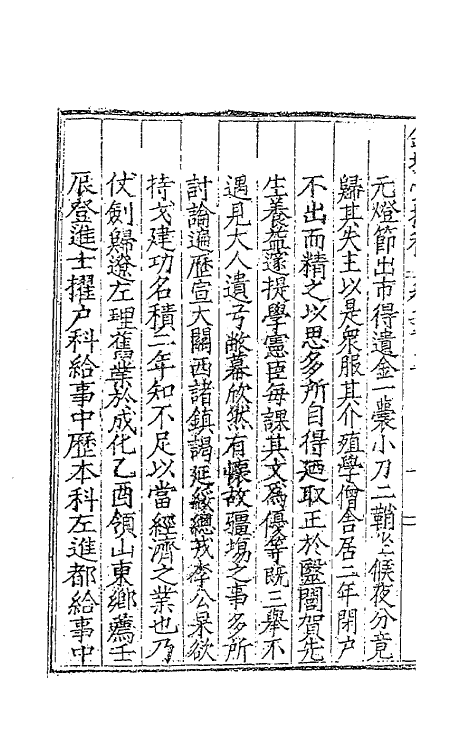 元燈節出市得遺金一囊小刀二鞘坐候夜分竟
歸其失主以是衆服其介殖學僧舍居二年閉戶
不出而精之以思多所自得廼取正於毉閭賀先
生養益邃提學憲臣每課其文爲優等既三舉不
遇見大人遺弓敝幕欣然有懷故疆埸之事多所
討論遍歷宣大關西諸鎮謁延綏總戎李公杲欲
持戈建功名積二年知不足以當經濟之業也乃
仗劍歸遼左理舊業於成化乙酉領山東鄉薦壬
辰登進士擢户科給事中歷本科左進都給事中